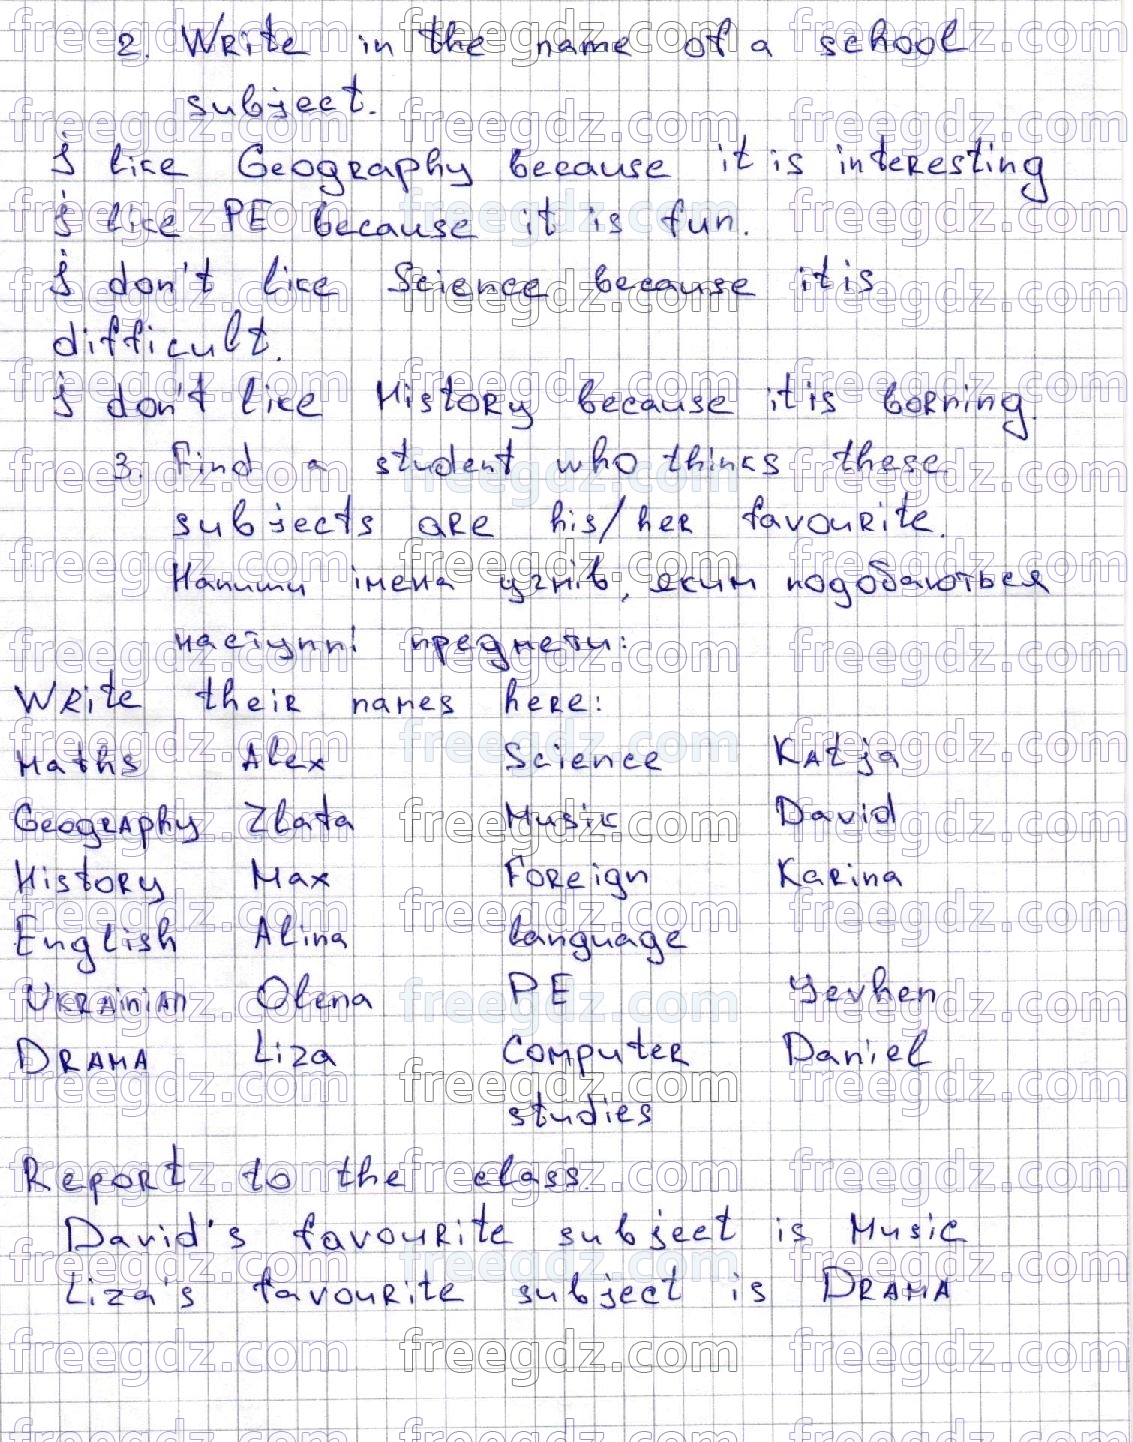 2. Write in the name of a school
subject.
I like Geography because it is interesting
I like PE because it is fun.
I don't like Science because it is
difficult.
I don't like History because it is borning.
3. Find a student who thinks these
subjects are his/her favourite.
Напиши імена учнів, яким подобаються
наступні предмети:
Write their names here:
Maths Alex Science Katja
Geography Zlata Music David
History Max Foreign Karina
English Alina language
Ukrainian Olena PE Yevhen
Drama Liza Computer Daniel
studies
Report to the class.
David's favourite subject is Music
Liza's favourite subject is Drama
freegdz.com